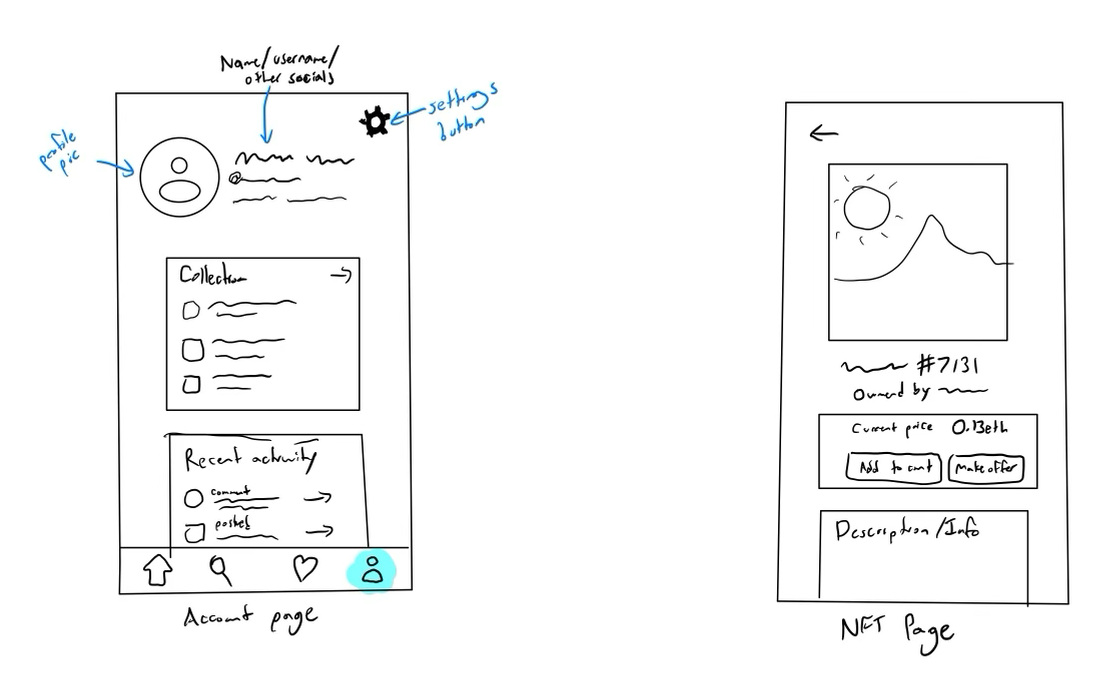 Name/username/
other socials
settings
button
profile
pic
Collection
Recent activity
comment
posted
Account page
#7131
Owned by
Current price 0.13eth
Add to cart
Make offer
Description/Info
NFT Page